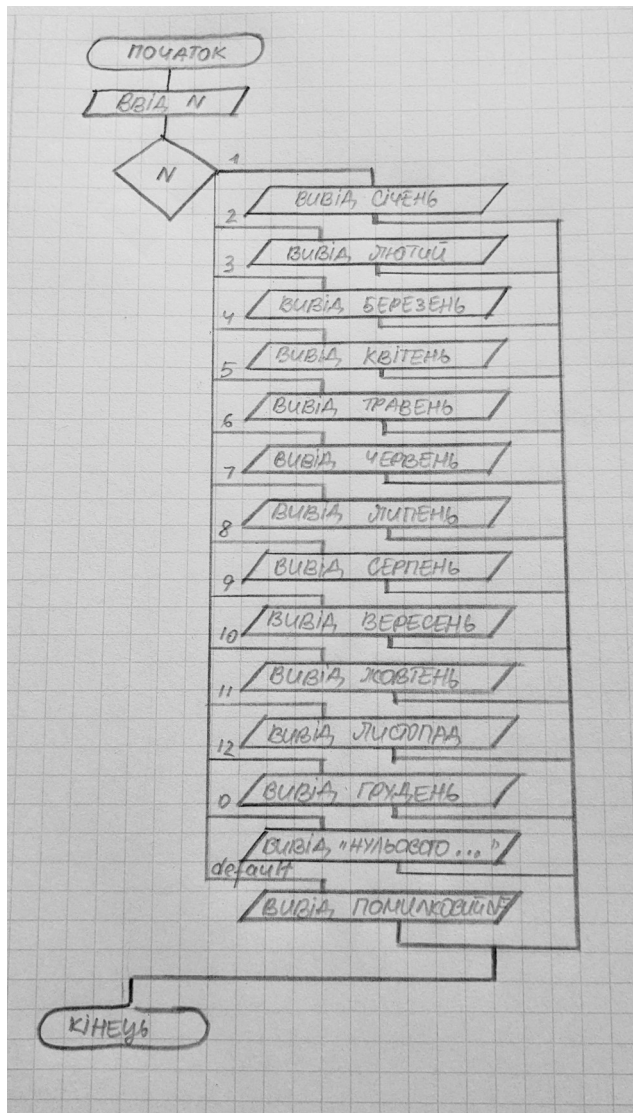 ПОЧАТОК
ВВІД N
N
1
ВИВІД СІЧЕНЬ
2
ВИВІД ЛЮТИЙ
3
ВИВІД БЕРЕЗЕНЬ
4
ВИВІД КВІТЕНЬ
5
ВИВІД ТРАВЕНЬ
6
ВИВІД ЧЕРВЕНЬ
7
ВИВІД ЛИПЕНЬ
8
ВИВІД СЕРПЕНЬ
9
ВИВІД ВЕРЕСЕНЬ
10
ВИВІД ЖОВТЕНЬ
11
ВИВІД ЛИСТОПАД
12
ВИВІД ГРУДЕНЬ
0
ВИВІД "НУЛЬОВОГО..."
default
ВИВІД ПОМИЛКОВИЙ №
КІНЕЦЬ